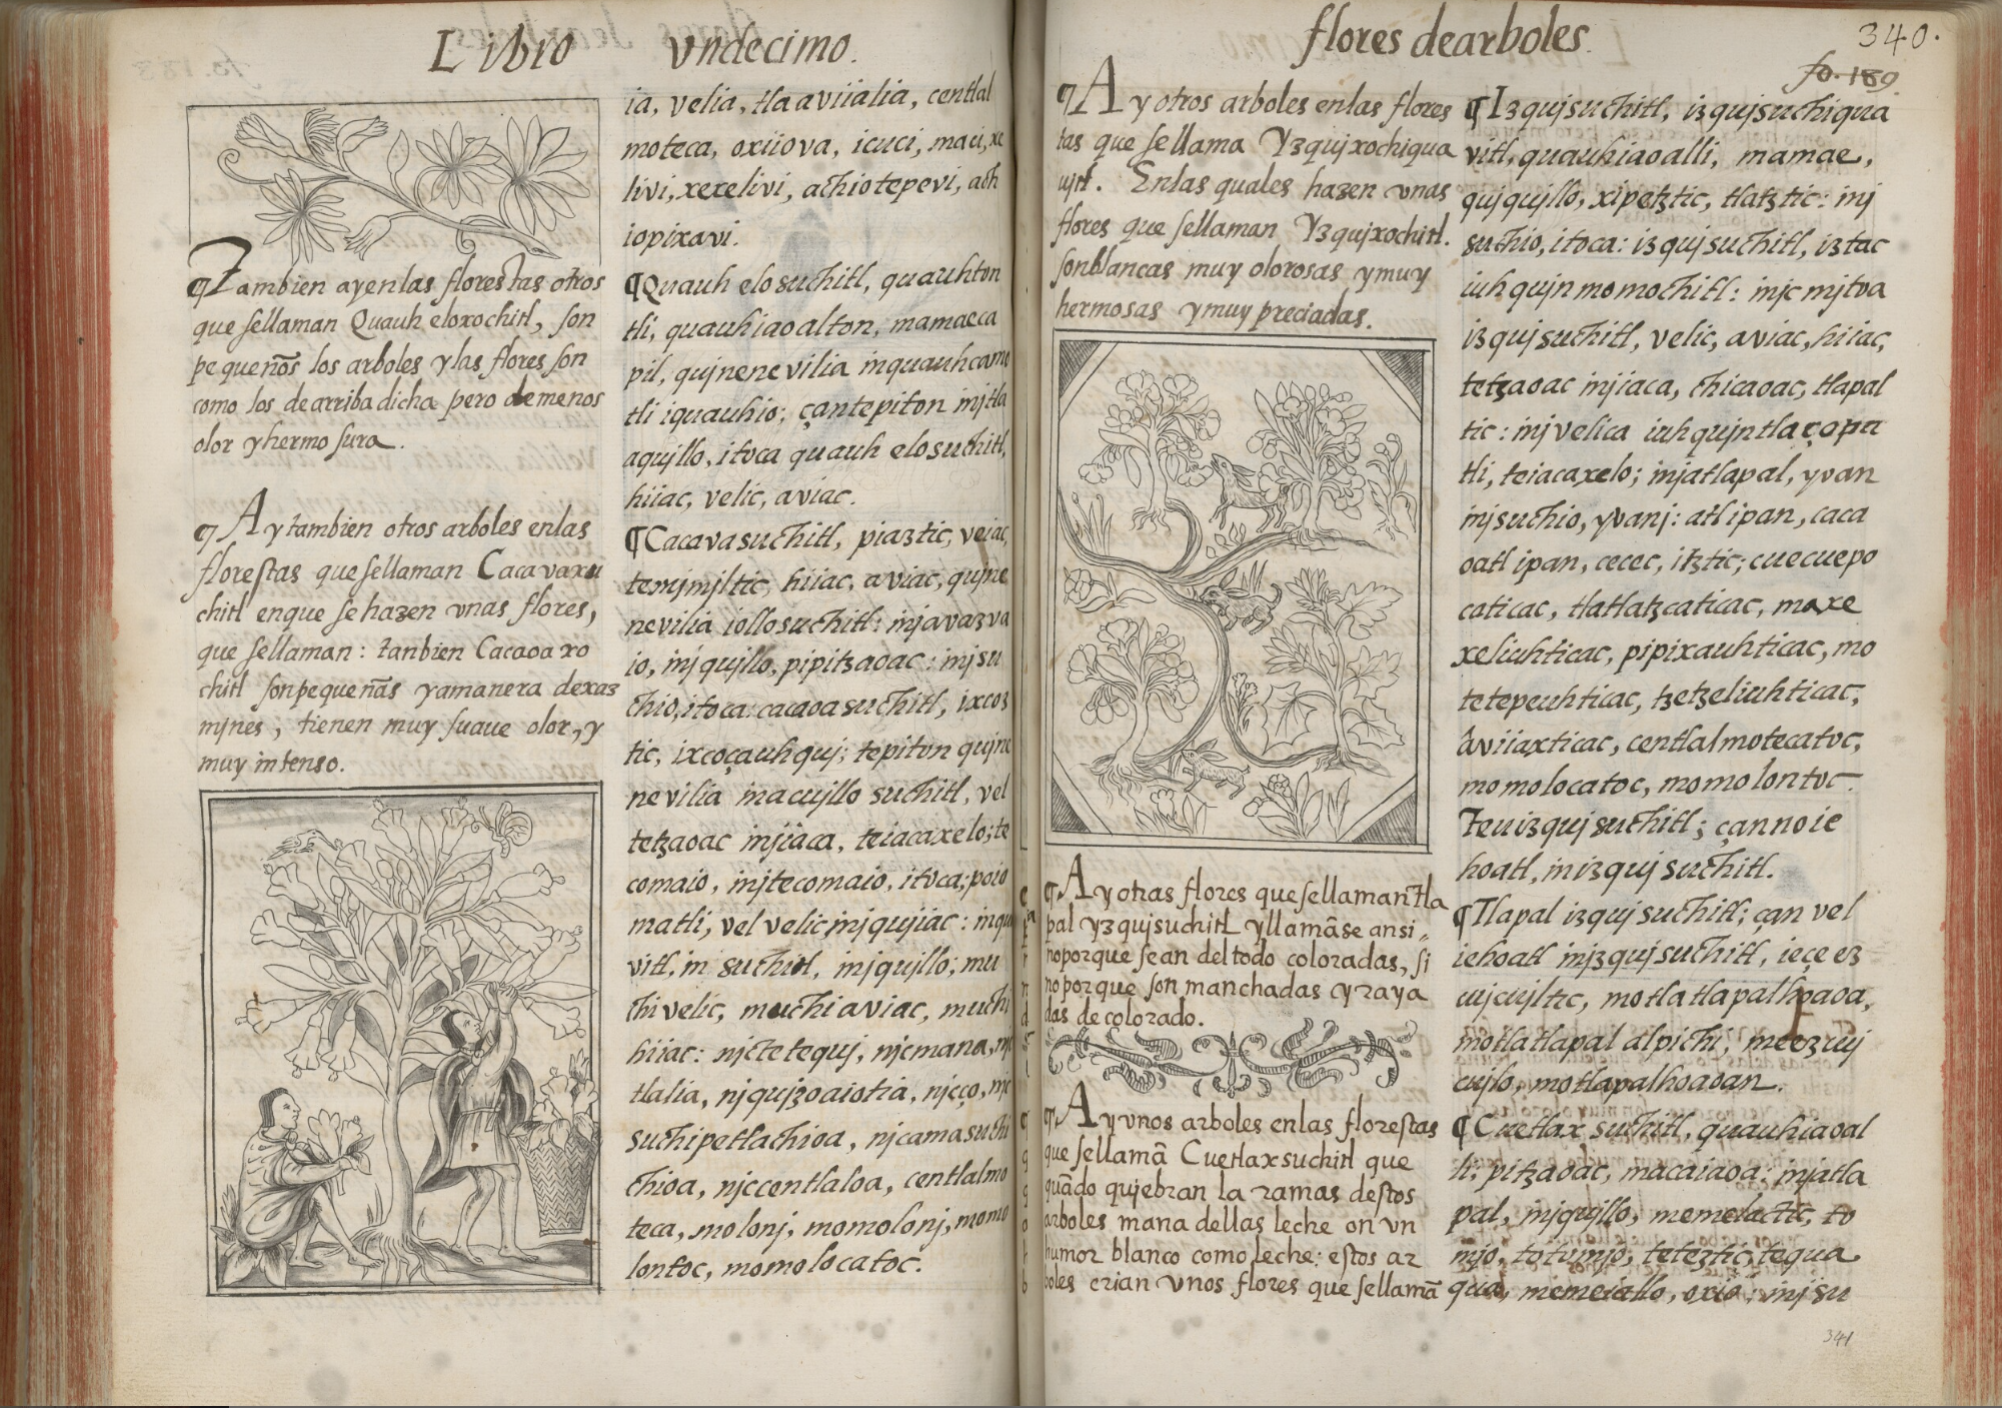 Libro vndecimo.
¶Tambien ay enlas florestas otros
que sellaman Quauh eloxochitl, son
pequenõs los arboles ylas flores son
como los de arriba dicha pero de menos
olor yhermosura.
¶Ay tambien otros arboles enlas
florestas que sellaman Cacavaxu
chitl enque se hazen vnas flores,
que sellaman: tanbien Cacaoa xo
chitl son pequenãs yamanera dexaz
mjnes, tienen muy suaue olor, y
muy intenso.
ia, velia, tlaaviialia, centlal
moteca, oxiiova, icuci, maci, xe
livi, xexelivi, achiotepevi, ach
iopixavi.
¶Quauh elosuchitl, quauhton
tli, quauhiaoalton, mamaeca
pil, qujnenevilia inquauhcamo
tli iquauhio; çantepiton injtla
aqujllo, itoca quauh elosuchitl,
hiiac, velic, aviac.
¶Cacavasuchitl, piaztic, veiac,
temjmjltic, hiiac, aviac, qujne
nevilia iollosuchitl: injavazva
io, injqujllo, pipitzaoac: injsu
chio, itoca: cacaoasuchitl, ixcoz
tic, ixcoçauhquj; tepiton qujne
nevilia macujllo suchitl, vel
tetzaoac injiaca, teiacaxelo; te
comaio, injtecomaio, itoca; poio
matli, vel velic injqujiac: inqua
vitl, in suchitl, injqujllo; mu
chi velic, muchi aviac, muchi
hiiac: njctetequj, njcmana, njc
tlalia, njqujzoaiotia, njcço, njc
suchipetlachioa, njcamasuchi
chioa, njccentlaloa, centlalmo
teca, molonj, momolonj, momo
lontoc, momolocatoc.
flores dearboles. 340.
fo. 189.
¶Ay otros arboles enlas flores
tas que sellama Yzqujxochiqua
ujtl. Enlas quales hazen vnas
flores que sellaman Yzqujxochitl.
son blancas muy olorosas ymuy
hermosas ymuy preciadas.
¶Ay otras flores que sellaman tla
pal yzqujsuchitl yllamãse ansi,
noporque sean del todo coloradas, si
noporque son manchadas yraya
das de colorado.
¶Ay vnos arboles enlas florestas
que sellamã Cuetlaxsuchitl que
quãdo qujebran la ramas destos
arboles mana dellas leche on vn
humor blanco como leche: estos ar
boles crian vnos flores que sellamã
¶Izqujsuchitl, izqujsuchiqua
vitl, quauhiaoalli, mamae,
qujqujllo, xipetztic, tlatztic: inj
suchio, itoca: izqujsuchitl, iztac
iuhqujn momochitl: injc mjtoa
izqujsuchitl, velic, aviac, hiiac,
tetzaoac injiaca, chicaoac, tlapal
tic: injvelica iuhqujntlaçopa
tli, teiacaxelo; injatlapal, yvan
injsuchio, yvanj: atl ipan, caca
oatl ipan, cecec, itztic; cuecuepo
caticac, tlatlatzcaticac, maxe
xeliuhticac, pipixauhticac, mo
tetepeuhticac, tzetzeliuhticac,
âviiaxticac, centlalmotecatoc,
momolocatoc, momolontoc.
Teuizqujsuchitl; çannoie
hoatl, inizqujsuchitl.
¶Tlapal izqujsuchitl; çan vel
iehoatl injzqujsuchitl, ieçe ez
cujcujltic, motlatlapalhoaoa,
motlatlapal alpichi, meezcuj
cujlo, motlapalhoaoan.
¶Cuetlax suchitl, quauhiaoal
li, pitzaoac, macaiaoa: injatla
pal, injqujllo, memelactic, to
mjo, totomjo, teteztic, tequa
qua, memeiallo, oxio: injsu
341